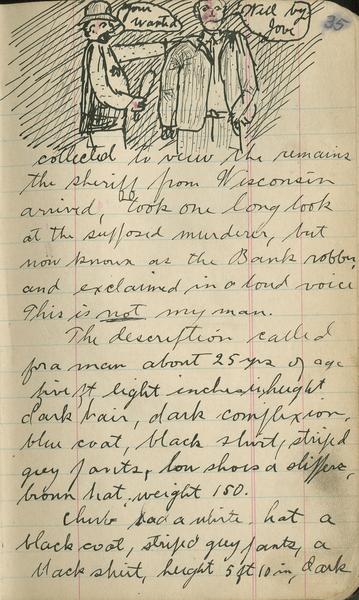 your wanted
Well by Jove
35
collected to view the remains
the sheriff from Wisconsin
arrived, took one long look
at the supposed murderer, but
now known as the Bank robber
and exclaimed in a loud voice
This is not my man.
The description called
for a man about 25 yrs of age
five ft eight inches in height
dark hair, dark complexion,
blue coat, black shirt, striped
grey pants, low shoes a slipper,
brown hat, weight 150.
had a white hat a
black coat, striped grey pants, a
black shirt, height 5 ft 10 in, dark